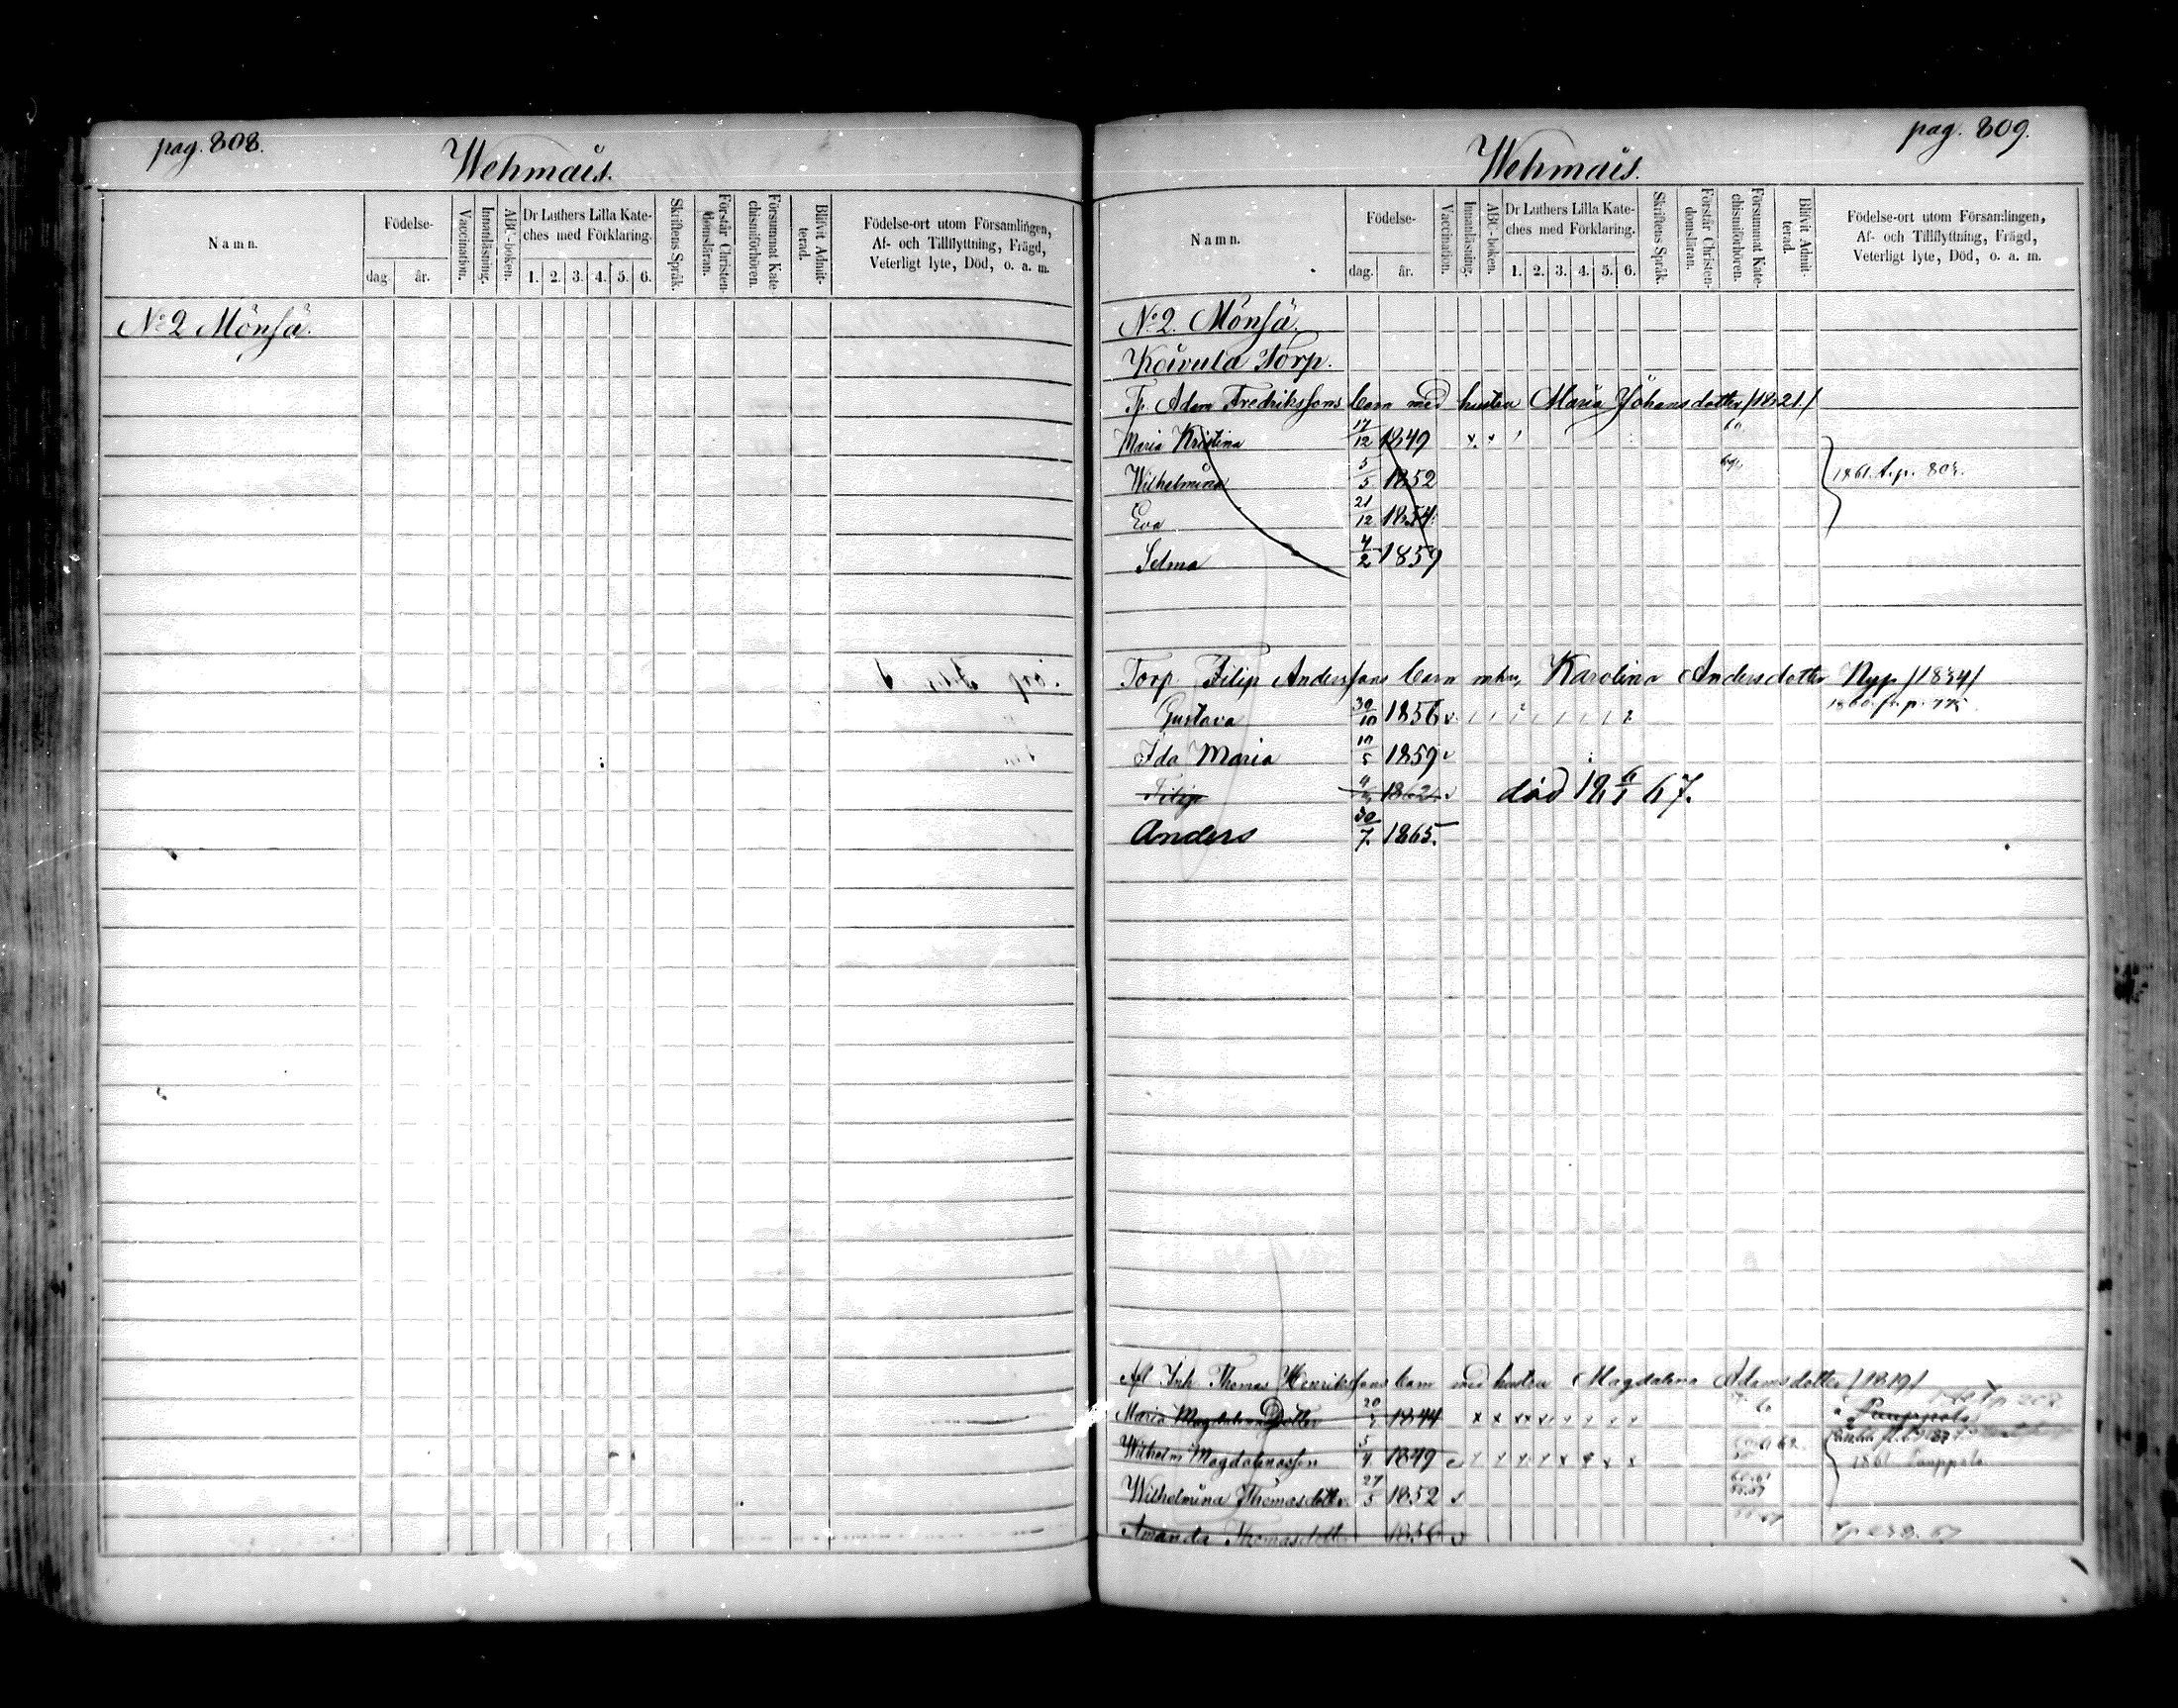 pag. 808.
Wehmais.
Namn.
Födelse-
dag. år.
Vaccination.
Innanläsning.
ABC-boken.
Dr Luthers Lilla Kate-
ches med Förklaring.
1. 2. 3. 4. 5. 6.
Skriftens Språk.
Förstår Christen-
domsläran.
Försummat Kate-
chismiförhören.
Blifvit Admit-
terad.
Födelse-ort utom Församlingen,
Af- och Tillflyttning, Frägd,
Veterligt lyte, Död, o. a. m.
No 2 Mönsä.
pag. 809.
Wehmais.
Namn.
Födelse-
dag. år.
Vaccination.
Innanläsning.
ABC-boken.
Dr Luthers Lilla Kate-
ches med Förklaring.
1. 2. 3. 4. 5. 6.
Skriftens Språk.
Förstår Christen-
domsläran.
Försummat Kate-
chismiförhören.
Blifvit Admit-
terad.
Födelse-ort utom Församlingen,
Af- och Tillflyttning, Frägd,
Veterligt lyte, Död, o. a. m.
No 2. Mönsä.
Koivula Torp.
Tp. Adam Fredrikssons barn med hustru Maria Johansdotter /1821/
Maria Kristina 17/12 1849 x x 60
Wilhelmina 5/5 1852 1861
Eva 21/12 1854.
Selma 4/2 1859
Torp. Filip Anderssons barn m hu, Karolina Andersdotter Nyp /1834/
Gustava 30/10 1856
Ida Maria 1859
Filip 1862 död 18 67.
Anders 30/7. 1865.
Afl Inh Thomas Henrikssons barn med hustru Magdalena Adamsdotter /1819/
Maria Magdalenadotter 1844 x x x x
Wilhelm Magdalenasson 5/4 1849 1861 Pauppola
Wilhelmina Thomasdotter 27/5 1852
Amanda Thomasdott 1856